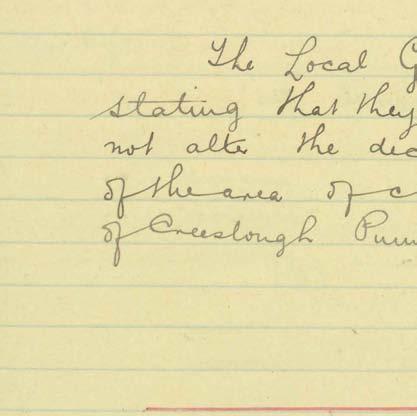 The Local G
stating that they
not alter the dec
of the area of c
of Creeslough Pum